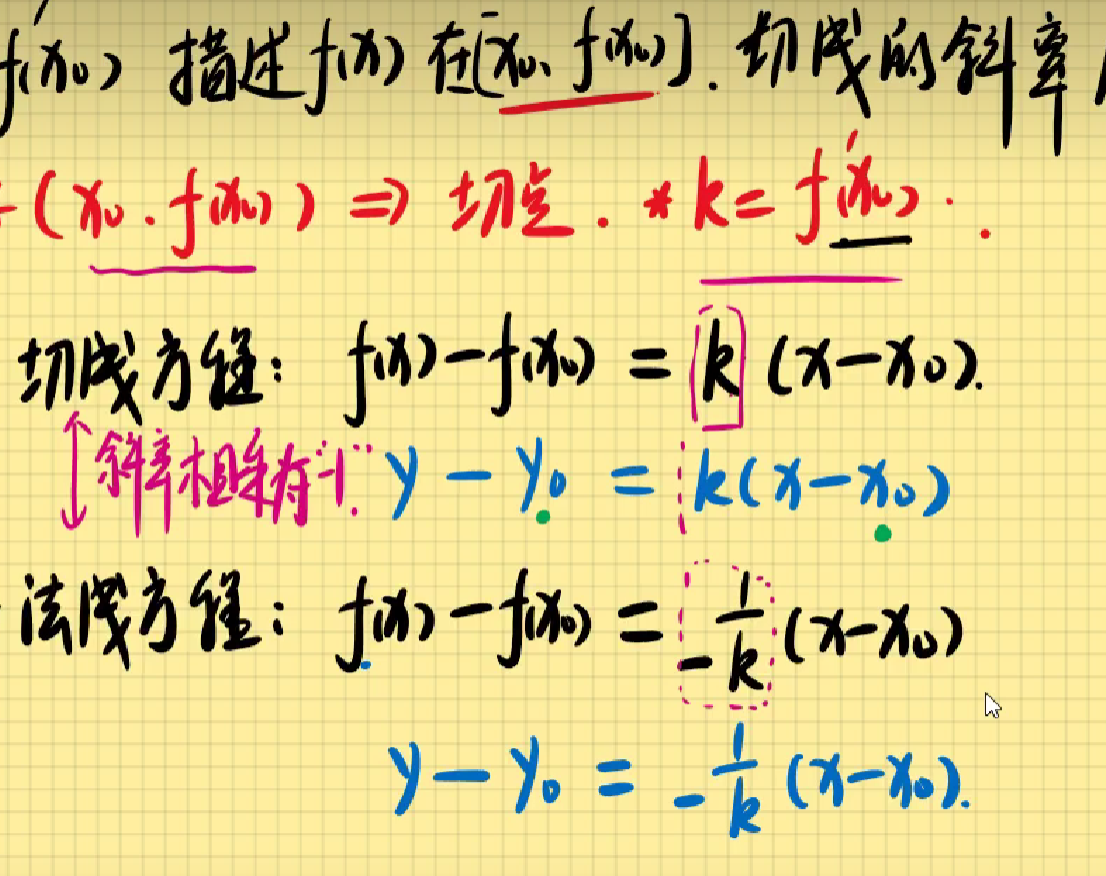 f'(x₀) 描述 f(x) 在[x₀、f(x₀)]. 切线的斜率
(x₀.f(x₀)) ⇒ 切点. * k = f'(x₀).
切线方程: f(x)-f(x₀) = k (x-x₀).
斜率相乘为"-1". y - y₀ = k(x-x₀)
法线方程: f(x)-f(x₀) = -1/k (x-x₀)
y - y₀ = -1/k (x-x₀).